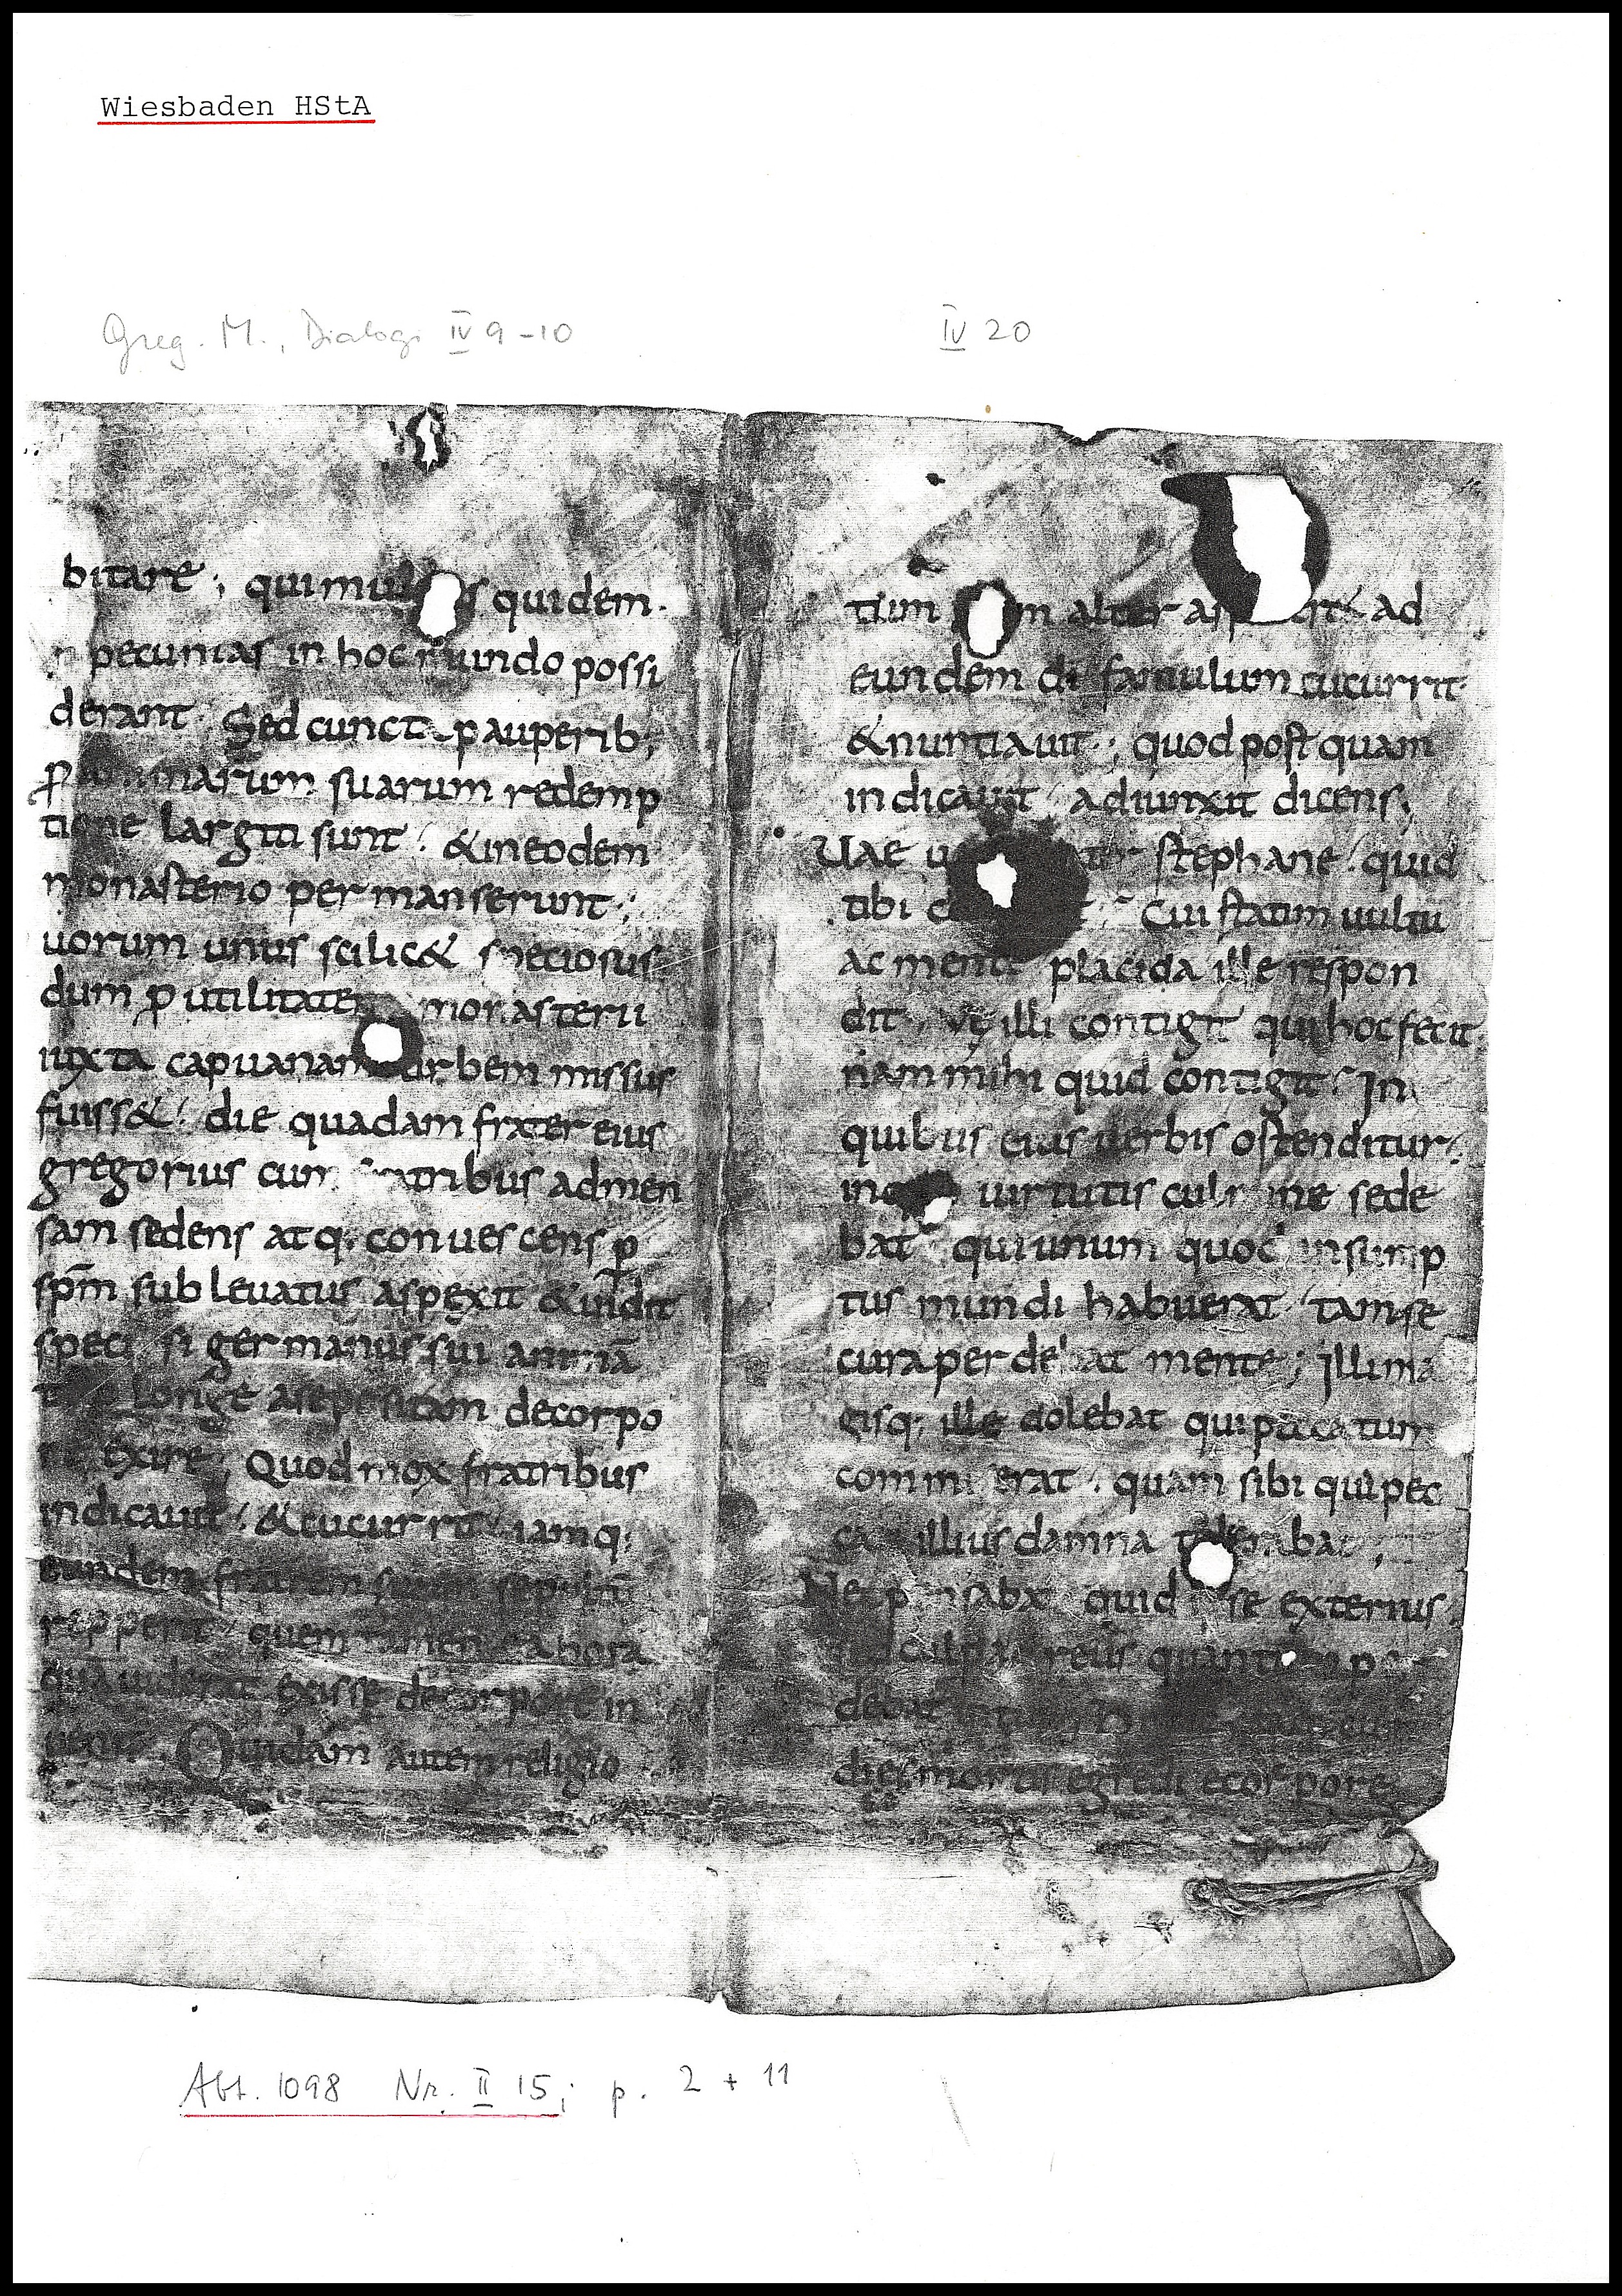 Wiesbaden HStA
Greg. M., Dialogi IV 9-10
IV 20
bitare; qui quidem.
pecunias in hoc mundo possi
derant. Sed cuncta pauperib;
ꝓ animarum suarum redemp
tione largiti sunt. & in eodem
monasterio permanserunt;
uorum unus scilic& speciosus
dum ꝓ utilitate monasterii
iuxta capuanam urbem missus
fuiss& die quadam frater eius
gregorius cum fratribus ad men
sam sedens atq; conuescens ꝑ
spm̄ subleuatus aspexit & uidit
speciosi germanus sui animā
longe a se positam de corpo
re exire; Quod mox fratribus
indicauit. & cucurrit iamq;
eundem fratrem suum sepultū
repperit quem tamen ea hora
qua uiderat exisse de corpore in
uenit. Quidam autem religio
tium alter ad
eundem di famulum cucurrit.
& nuntiauit; quod postquam
indicauit adiunxit dicens,
Uae stephane. quid
tibi Cui statim uultu
ac mente placida ille respon
dit. illi contigit qui hoc fecit
nam mihi quid contigit. In
quibus eius uerbis ostenditur.
in uirtutis culmine sede
bat qui unum quod in sump
tus mundi habuerat tam se
cura perdebat mente; illi ma
gisq; ille dolebat qui peccatum
commiserat. quam sibi qui pec
cati illius damna tolerabat;
Nec pensabat quid ipse exterius
sed culpae reus quantum per
debat
dies mortis egredi e corpore
Abt. 1098 Nr. II 15; p. 2 + 11